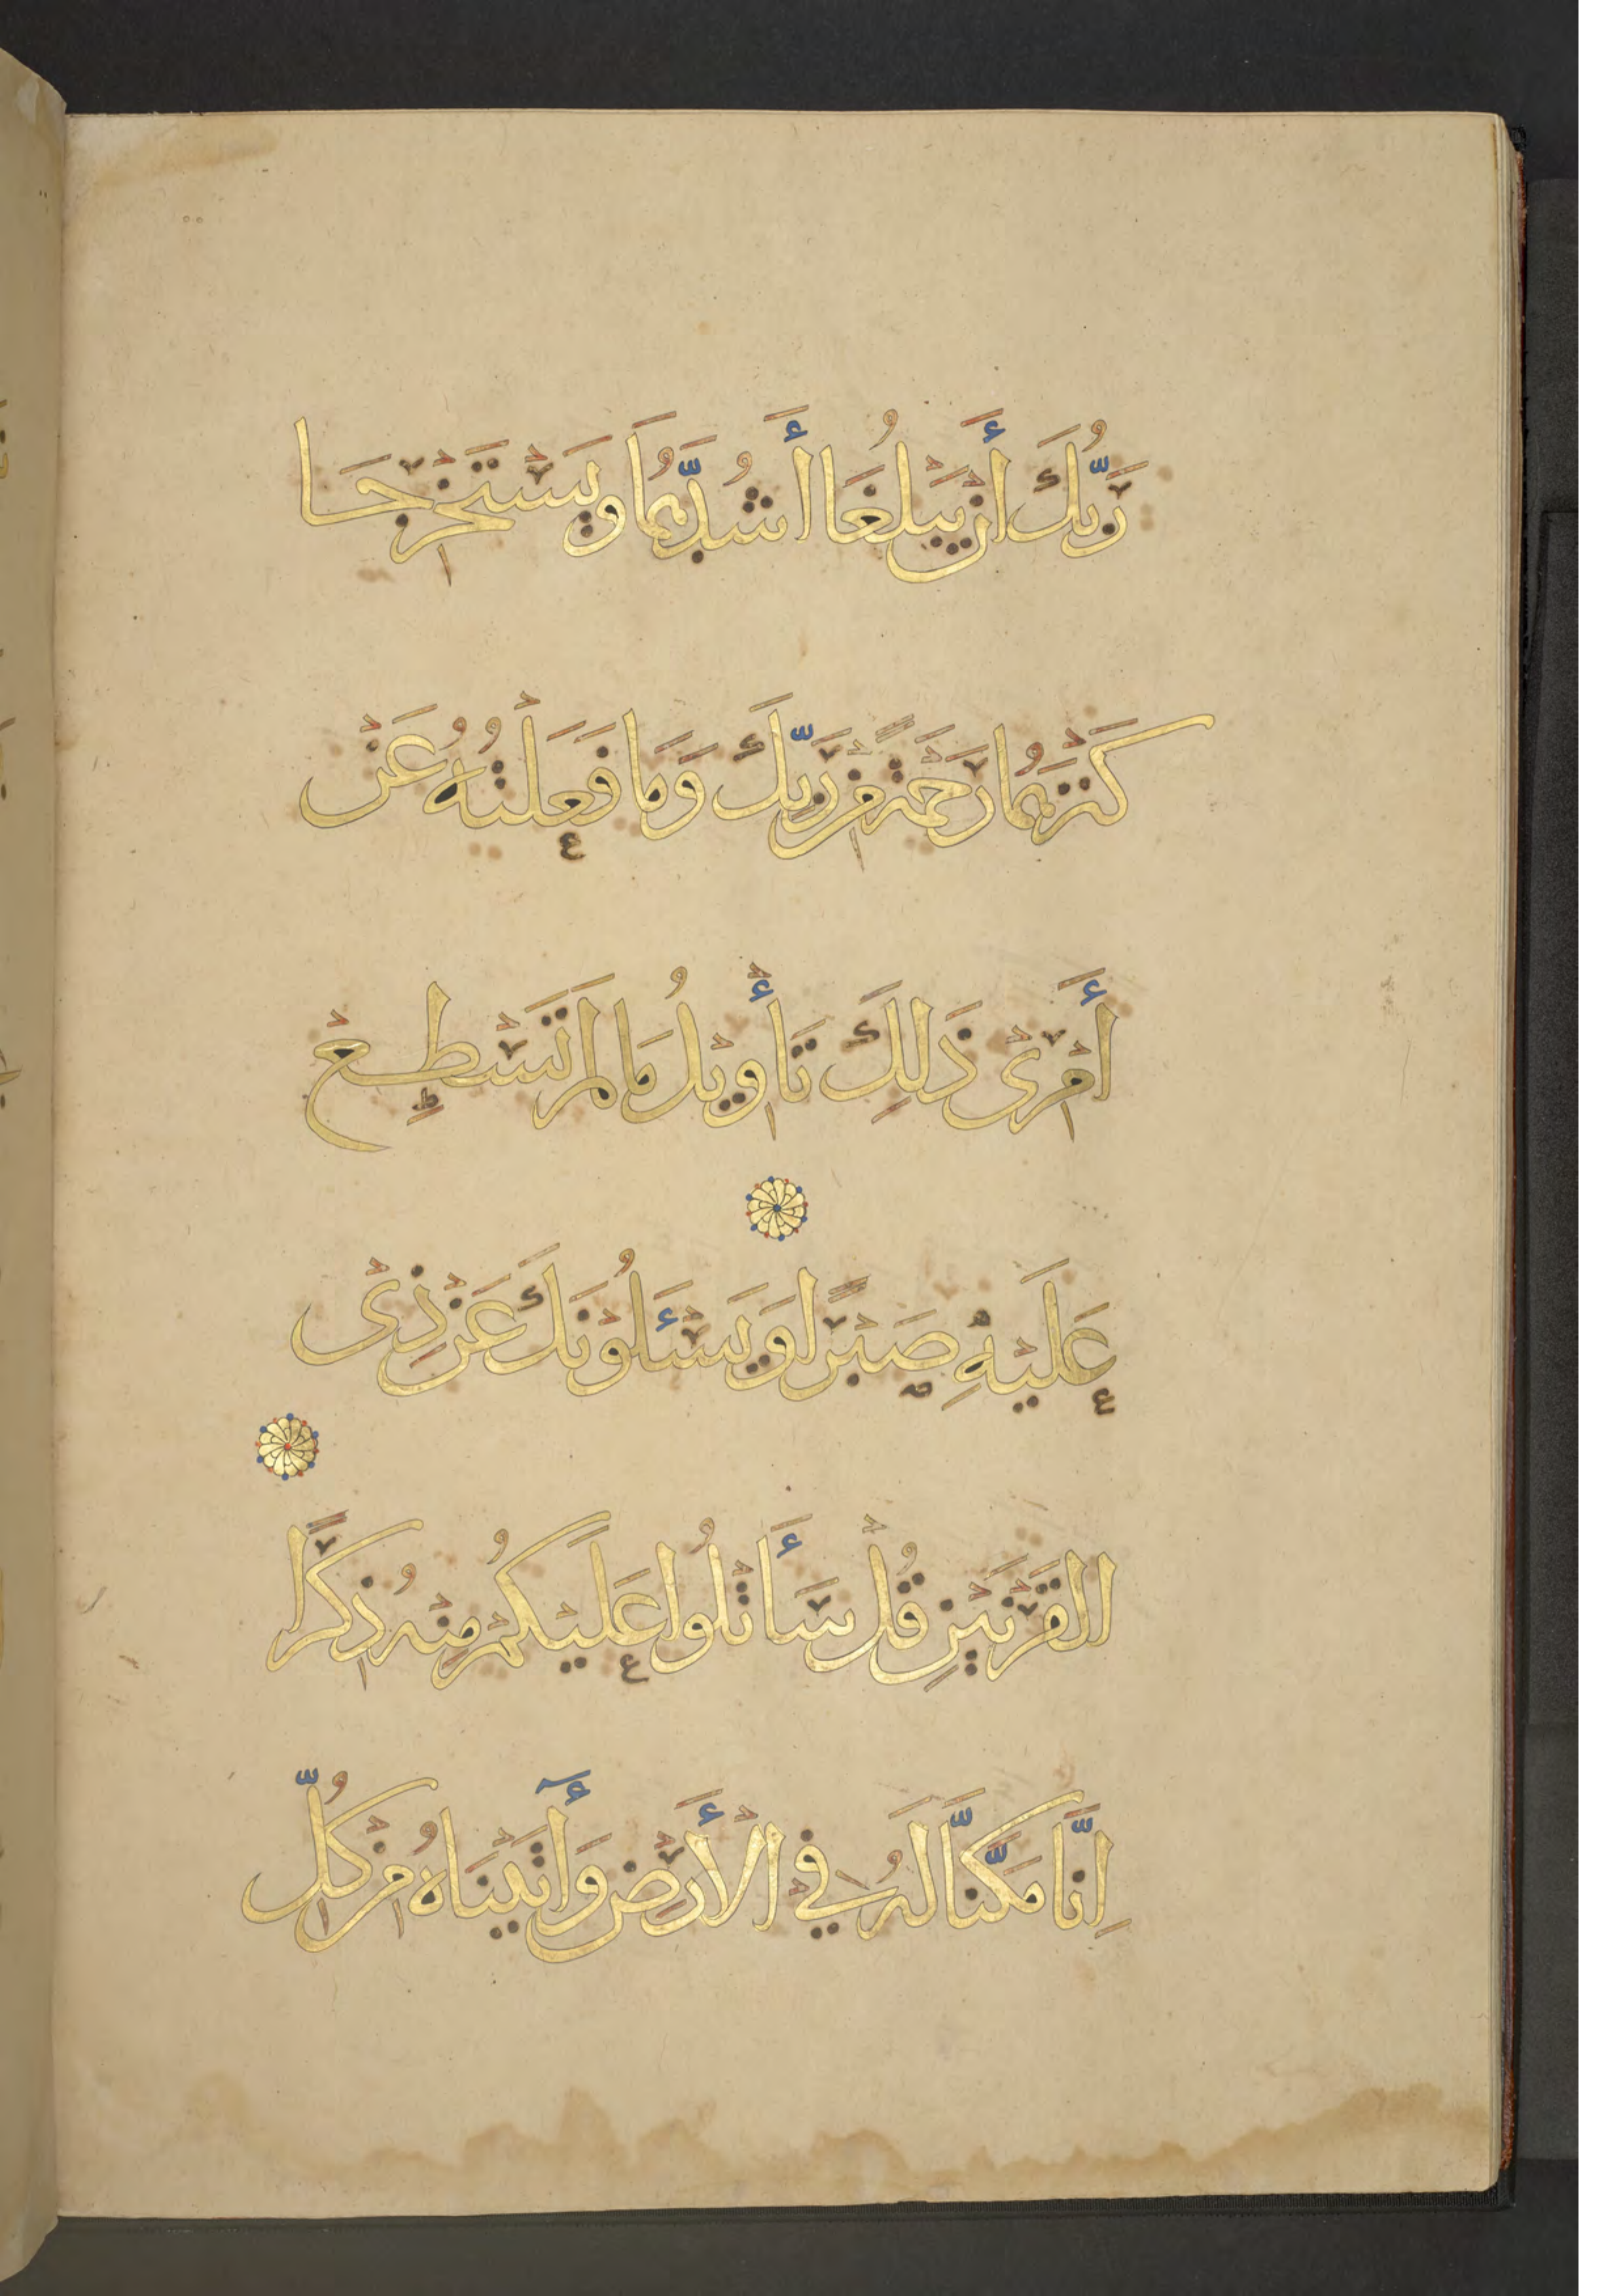 رَبُّكَ أَنْ يَبْلُغَا أَشُدَّهُمَا وَيَسْتَخْرِجَا
كَنْزَهُمَا رَحْمَةً مِنْ رَبِّكَ وَمَا فَعَلْتُهُ عَنْ
أَمْرِىْ ذَلِكَ تَأْوِيْلُ مَا لَمْ تَسْطِعْ
عَلَيْهِ صَبْرًا وَيَسْـَٔلُوْنَكَ عَنْ ذِىْ
الْقَرْنَيْنِ قُلْ سَأَتْلُوا عَلَيْكُمْ مِنْهُ ذِكْرًا
اِنَّا مَكَّنَّا لَهُ فِيْ الْأَرْضِ وَأٓتَيْنَاهُ مِنْ كُلِّ